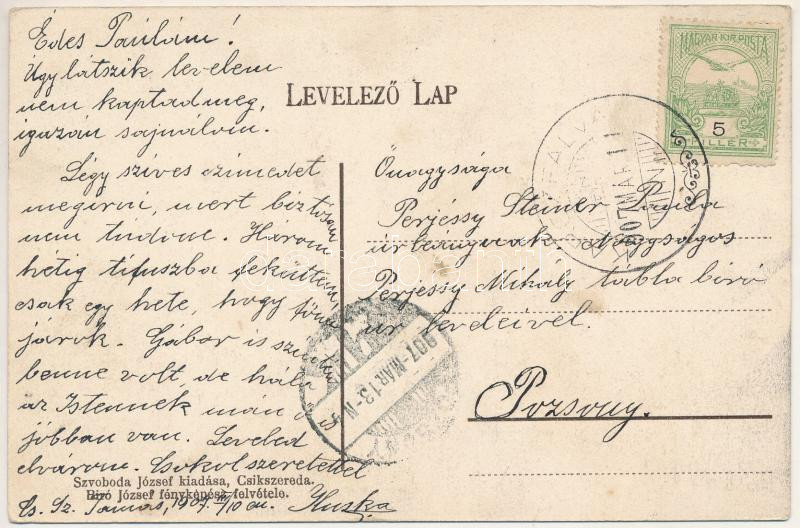 Édes Paulám!
Úgy látszik levelem
nem kaptad meg,
igazán sajnálom.
Légy szíves címedet
megirni, mert biztosan
nem tudom. Három
hetig tífuszba feküttem
csak egy hete, hogy fönn
járok. Gábor is szintén
benne volt, de hála
az Istennek már
jobban van. Leveled
elvárom. Csókol szeretettel
Szvoboda József kiadása, Csikszereda.
Biró József fényképész felvétele.
Cs. Sz. Tamás, 1907. III/10 én. Iluska
LEVELEZŐ LAP
MAGYAR KIR. POSTA
5
FILLÉR
FALVA
907 MÁR 11
Önagysága
Perjéssy Steiner Paula
urleánynak Nagyságos
Perjéssy Mihály tábla biró
úr leveleivel.
Pozsony.
907 MÁR 13